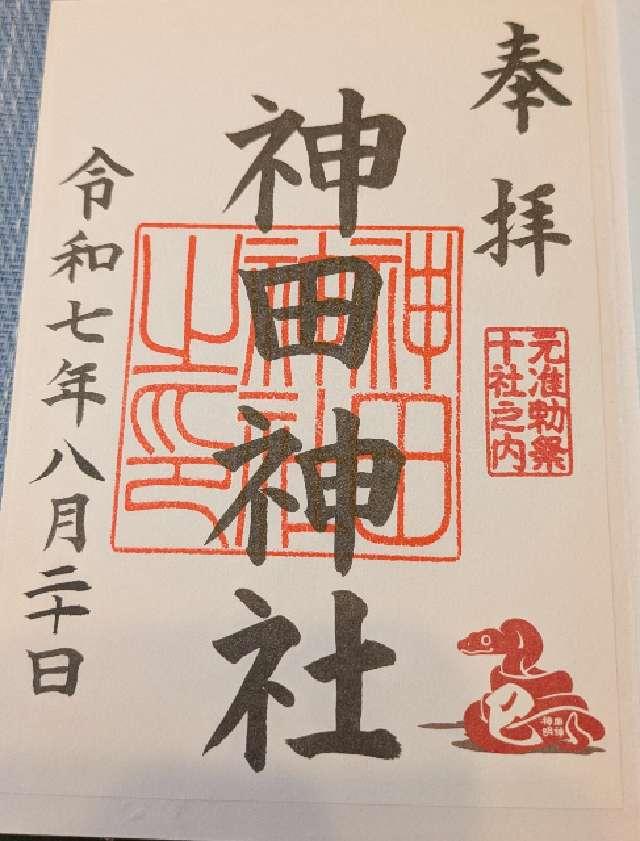 奉拝
元准勅祭
十社之内
神田神社
神田
神社
之印
巳
令和七年八月二十日